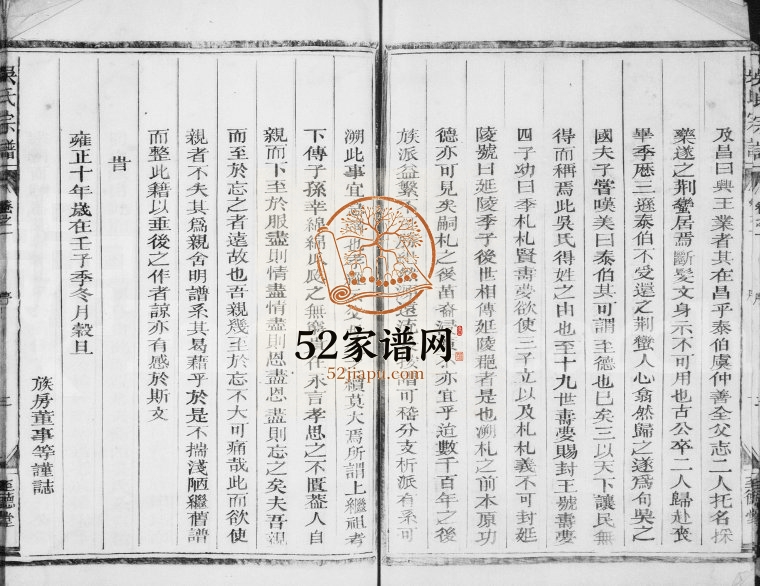 及昌曰興王業者其在昌乎泰伯虞仲善全父志二人托名採
藥遂之荆蠻居焉斷髮文身示不可用也古公卒二人歸赴喪
畢季歷三遜泰伯不受還之荆蠻人心翕然歸之遂爲句吳之
國夫子嘗嘆美曰泰伯其可謂至德也已矣三以天下讓民無
得而稱焉此吳氏得姓之由也至十九世壽夢賜封王號壽夢
四子幼曰季札札賢壽夢欲使三子立以及札札義不可封延
陵號曰延陵季子後世相傳延陵穪者是也溯札之前本原功
德亦可見矣嗣札之後苗裔
亦宜乎迨數千百年之後
族派益繁
可稽分支析派有系可
溯此事宜
續莫大焉所謂上繼祖考
下傳子孫幸綿綿瓜瓞之
作永言孝思之不匱蓋人自
親而下至於服盡則情盡情盡則恩盡恩盡則忘之矣夫吾親
而至於忘之者遠故也吾親幾至於忘不大可痛哉此而欲使
親者不失其爲親舍明譜系其曷藉乎於是不揣淺陋繼舊譜
而整此籍以垂後之作者諒亦有感於斯文
旹
雍正十年歲在壬子季冬月穀旦
族房董事等謹誌
吳氏宗譜
卷之一
至德堂
52家谱网
52jiapu.com